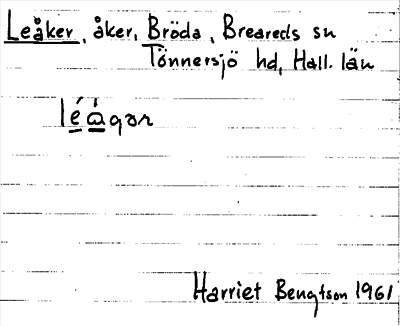 Leåker, åker, Bröda, Breareds sn
Tönnersjö hd, Hall. län
léàgər
Harriet Bengtson 1961